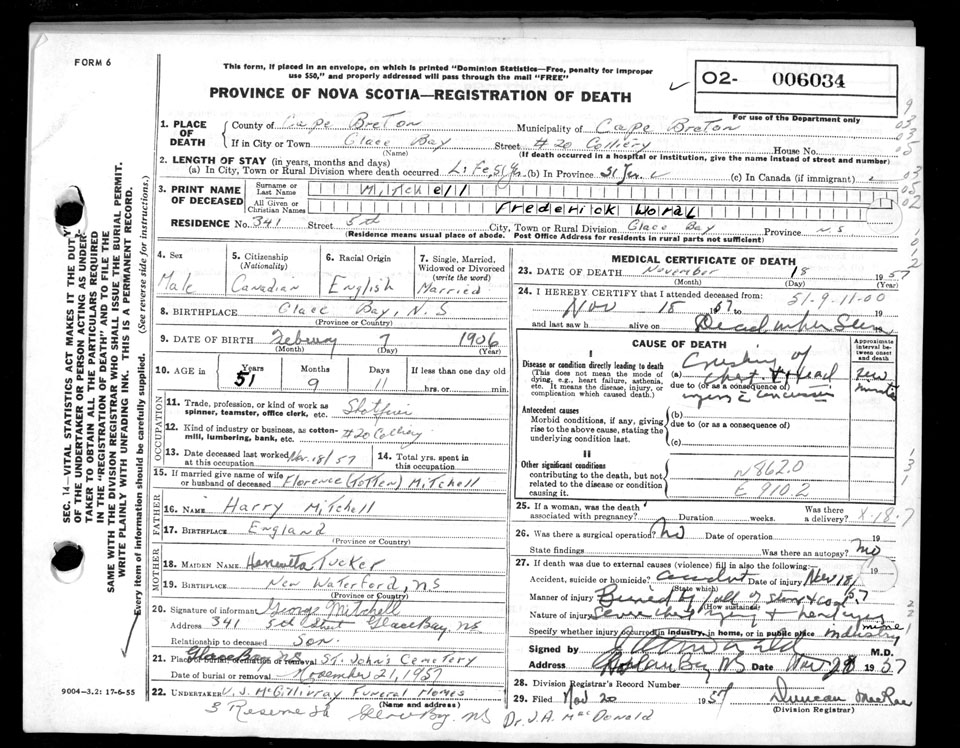 FORM 6
This form, if placed in an envelope, on which is printed "Dominion Statistics—Free, penalty for improper
use $50," and properly addressed will pass through the mail "FREE"
PROVINCE OF NOVA SCOTIA—REGISTRATION OF DEATH
02- 006034
For use of the Department only
1. PLACE OF DEATH
County of Cape Breton Municipality of Cape Breton
If in City or Town Glace Bay Street #20 Colliery House No.
(Name) (If death occurred in a hospital or institution, give the name instead of street and number)
2. LENGTH OF STAY (in years, months and days)
(a) In City, Town or Rural Division where death occurred Life, 51 y. (b) In Province 51 (c) In Canada (if immigrant)
3. PRINT NAME OF DECEASED
Surname or Last Name Mitchell
All Given or Christian Names Frederick Woral
RESIDENCE No. 341 Street 5th City, Town or Rural Division Glace Bay Province N.S
(Residence means usual place of abode. Post Office Address for residents in rural parts not sufficient)
4. Sex
Male
5. Citizenship
(Nationality)
Canadian
6. Racial Origin
English
7. Single, Married, Widowed or Divorced
(write the word)
Married
8. BIRTHPLACE Glace Bay, N.S
(Province or Country)
9. DATE OF BIRTH 7 1906
(Month) (Day) (Year)
10. AGE in Years Months Days If less than one day old
51 9 11 hrs. or min.
OCCUPATION
11. Trade, profession, or kind of work as
spinner, teamster, office clerk, etc. Shotfirer
12. Kind of industry or business, as cotton-
mill, lumbering, bank, etc. #20 Colliery
13. Date deceased last worked
at this occupation Nov. 18/57
14. Total yrs. spent in
this occupation
15. If married give name of wife
or husband of deceased Florence (Totten) Mitchell
FATHER
16. Name Harry Mitchell
17. BIRTHPLACE England
(Province or Country)
MOTHER
18. MAIDEN NAME Henrietta Tucker
19. BIRTHPLACE New Waterford, NS
(Province or Country)
20. Signature of informant George Mitchell
Address 341 5th Street Glace Bay, NS
Relationship to deceased Son.
21. Place of burial, cremation or removal Glace Bay N.S St. John's Cemetery
Date of burial or removal November 21, 1957
22. UNDERTAKER V. J. McGillivray Funeral Homes
(Name and address)
Glace Bay. NS
Dr. J.A. MacDonald
9004-3.2: 17-6-55
MEDICAL CERTIFICATE OF DEATH
23. DATE OF DEATH November 18 1957
(Month) (Day) (Year)
24. I HEREBY CERTIFY that I attended deceased from: 51-9-11-00
Nov 18 1957 to
and last saw h alive on Dead when Seen 19
CAUSE OF DEATH
Approximate interval between onset and death
I
Disease or condition directly leading to death
(This does not mean the mode of dying, e.g., heart failure, asthenia, etc. It means the disease, injury, or complication which caused death.)
(a) Crushing of
chest & Head
due to (or as a consequence of)
few
minutes
Antecedent causes
Morbid conditions, if any, giving rise to the above cause, stating the underlying condition last.
(b)
due to (or as a consequence of)
(c)
II
Other significant conditions
contributing to the death, but not related to the disease or condition causing it.
N862.0
E 910.2
25. If a woman, was the death associated with pregnancy? Duration weeks. Was there a delivery? X-18-7
26. Was there a surgical operation? No Date of operation 19
State findings Was there an autopsy? No
27. If death was due to external causes (violence) fill in also the following:
Accident, suicide or homicide? accident Date of injury Nov 18, 1957
(State which)
Manner of injury Buried by fall of stone & coal
(How sustained)
Nature of injury Severe chest injury & head injury
Specify whether injury occurred in industry, in home, or in public place mine Industry
Signed by M.D.
Address Glace Bay NS Date Nov 20 1957
28. Division Registrar's Record Number
29. Filed Nov 20 1957 Duncan MacRae
(Division Registrar)
SEC. 14—VITAL STATISTICS ACT MAKES IT THE DUTY
OF THE UNDERTAKER OR PERSON ACTING AS UNDER-
TAKER TO OBTAIN ALL THE PARTICULARS REQUIRED
IN THE "REGISTRATION OF DEATH" AND TO FILE THE
SAME WITH THE DIVISION REGISTRAR WHO SHALL ISSUE THE BURIAL PERMIT.
WRITE PLAINLY WITH UNFADING INK. THIS IS A PERMANENT RECORD.
Every item of information should be carefully supplied. (See reverse side for instructions.)